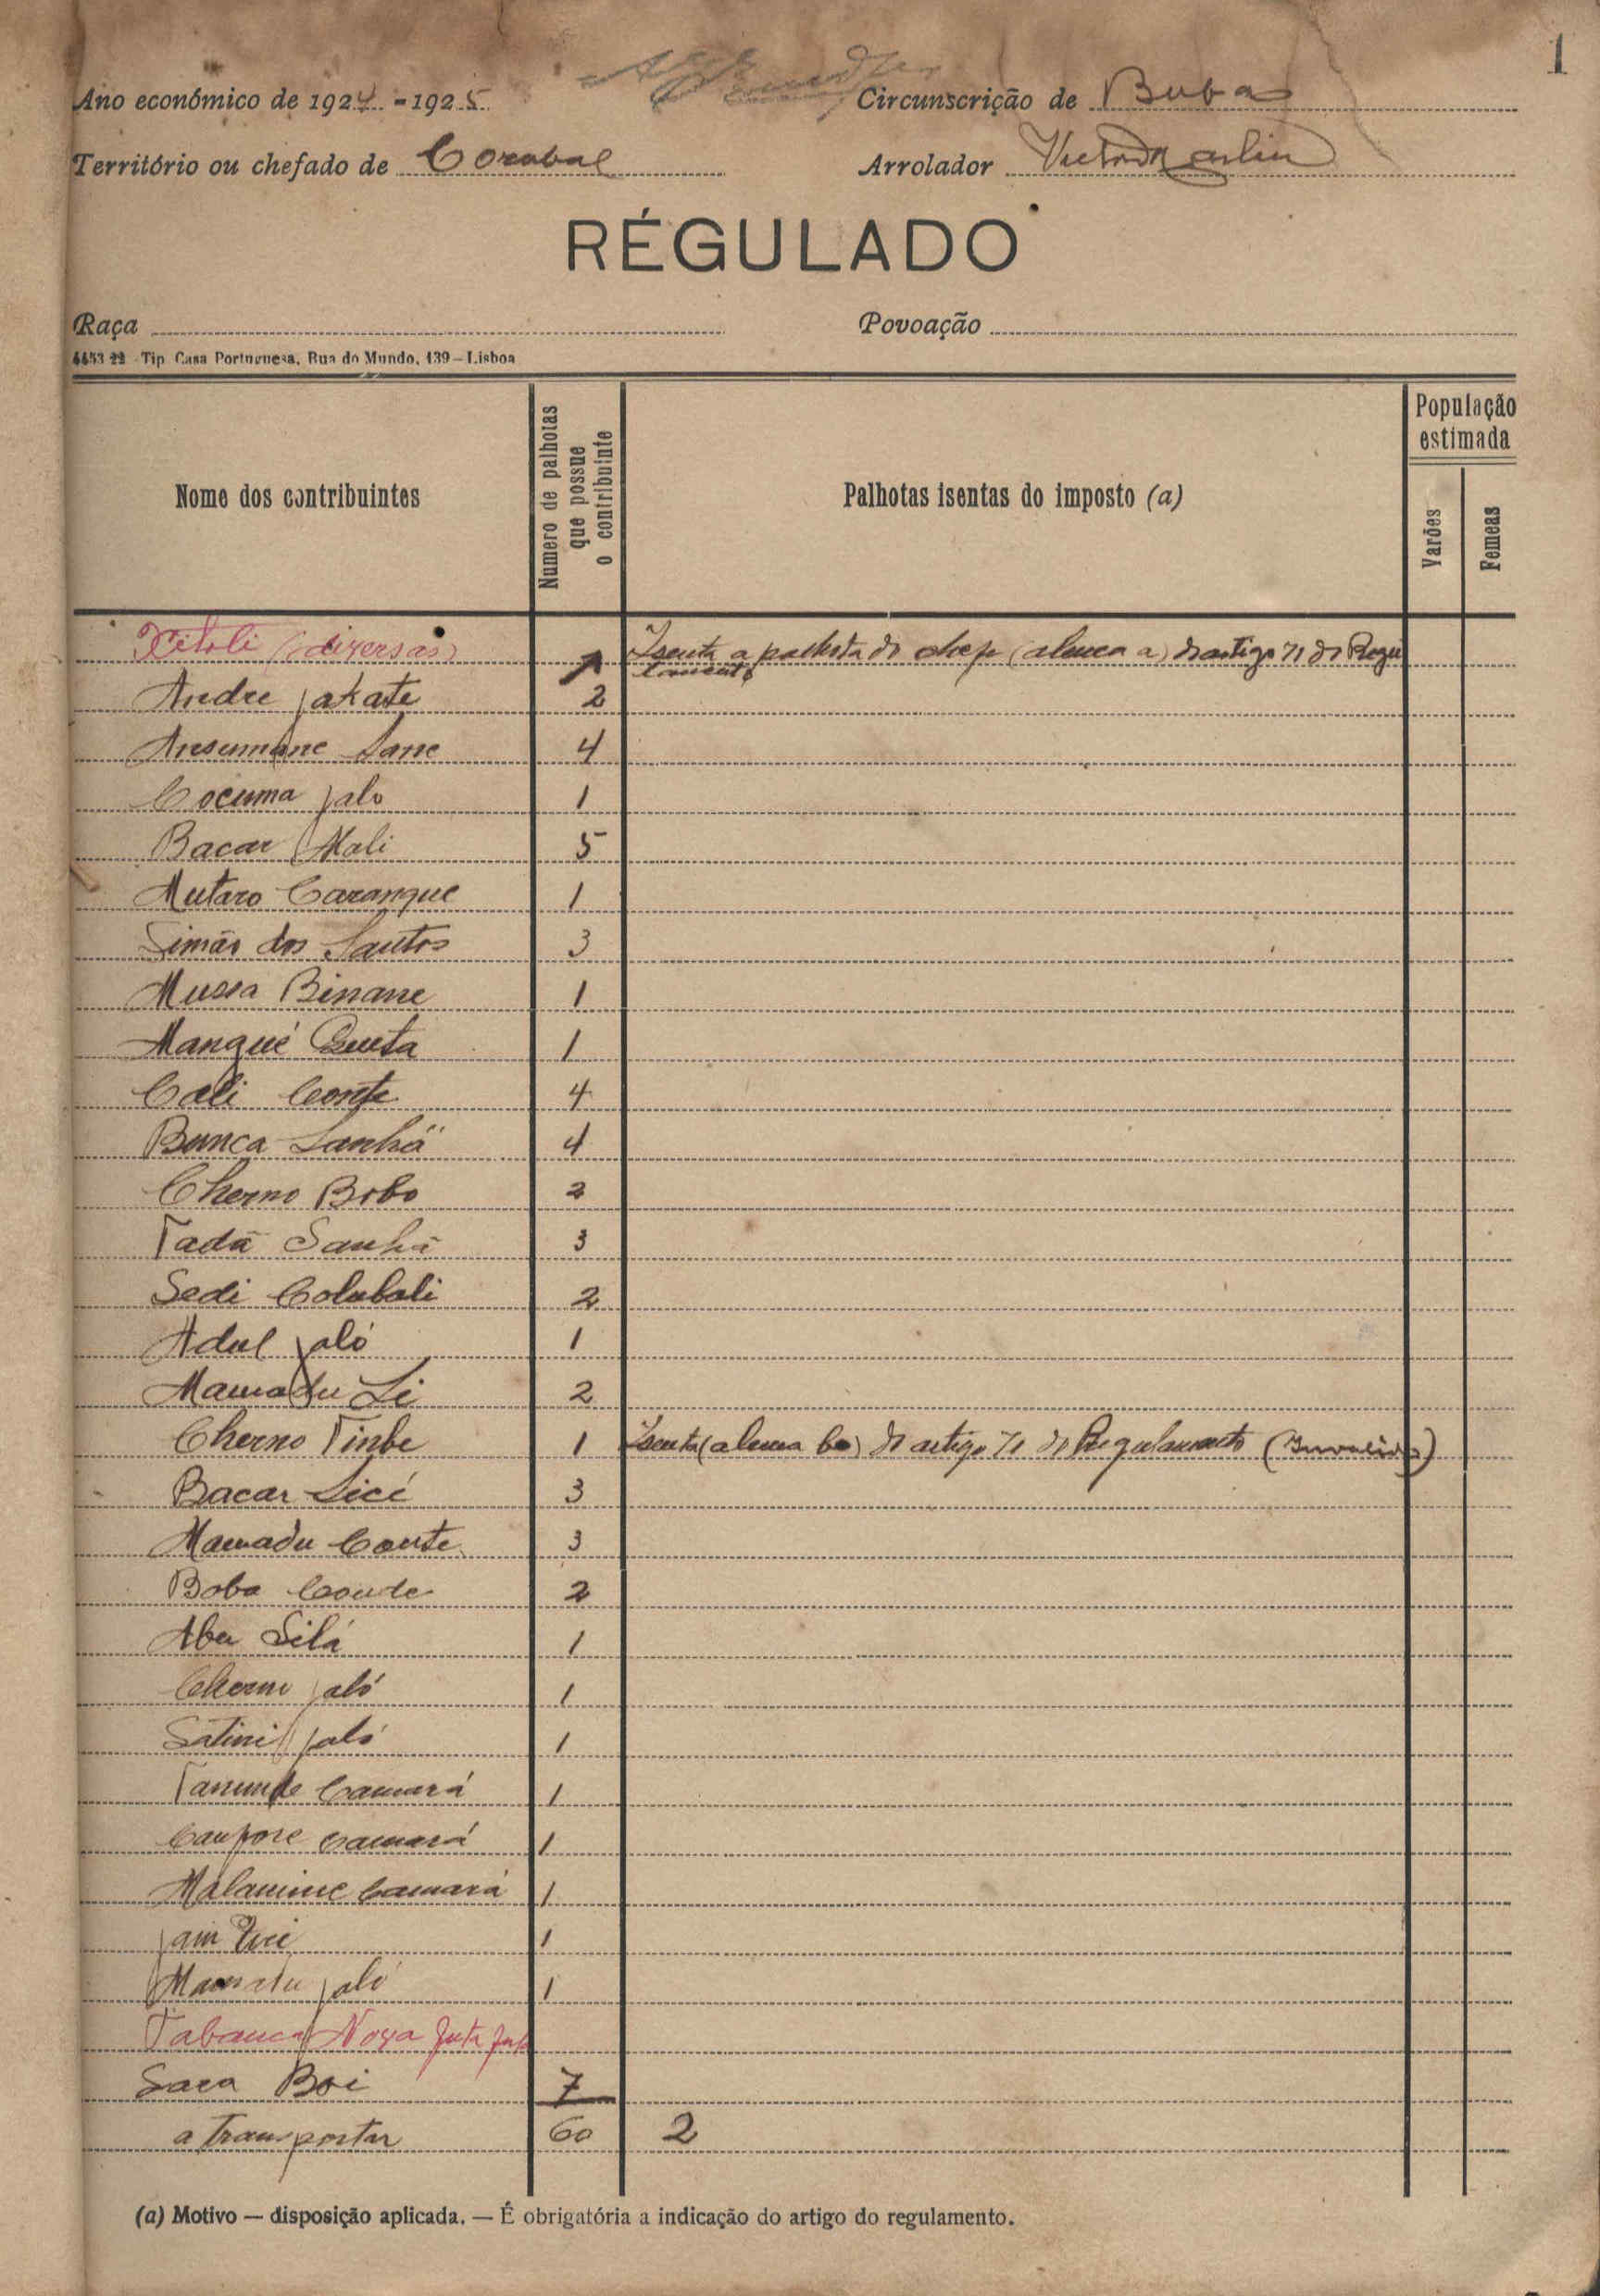 1
Ano económico de 1924 - 1925
Circunscrição de Buba
Território ou chefado de Corubal
Arrolador Victor Martin
RÉGULADO
Raça
Povoação
4453 22 - Tip. Casa Portuguesa, Rua do Mundo, 139 — Lisboa
Nome dos contribuintes
Numero de palhotas que possue o contribuinte
Palhotas isentas do imposto (a)
População estimada
Varões
Femeas
Xitoli (diversas) Isenta a palhota do chefe (alinea a) do artigo 71 do Regu
lamento
Andre Jakate 2
Ansumane Sane 4
Cocuma Jalo 1
Bacar Mali 5
Mutaro Caranque 1
Simão dos Santos 3
Mussa Binane 1
Mangué Queta 1
Cali Conte 4
Bunca Sanhã 4
Cherno Bobo 2
Tadã Sanhã 3
Sedi Colubali 2
Adul Jaló 1
Mamadu Li 2
Cherno Tinbe 1 Isenta (alinea b) do artigo 71 do Regulamento (Invalido)
Bacar Sicí 3
Mamadu Conte 3
Boba Conde 2
Abu Silá 1
Cherno Jaló 1
Satini Jaló 1
Camará 1
Camará 1
Malamine Camará 1
1
Mamadu Jaló 1
Tabanca Nova Juta Juta
Sara Boi 7
a transportar 60 2
(a) Motivo — disposição aplicada. — É obrigatória a indicação do artigo do regulamento.